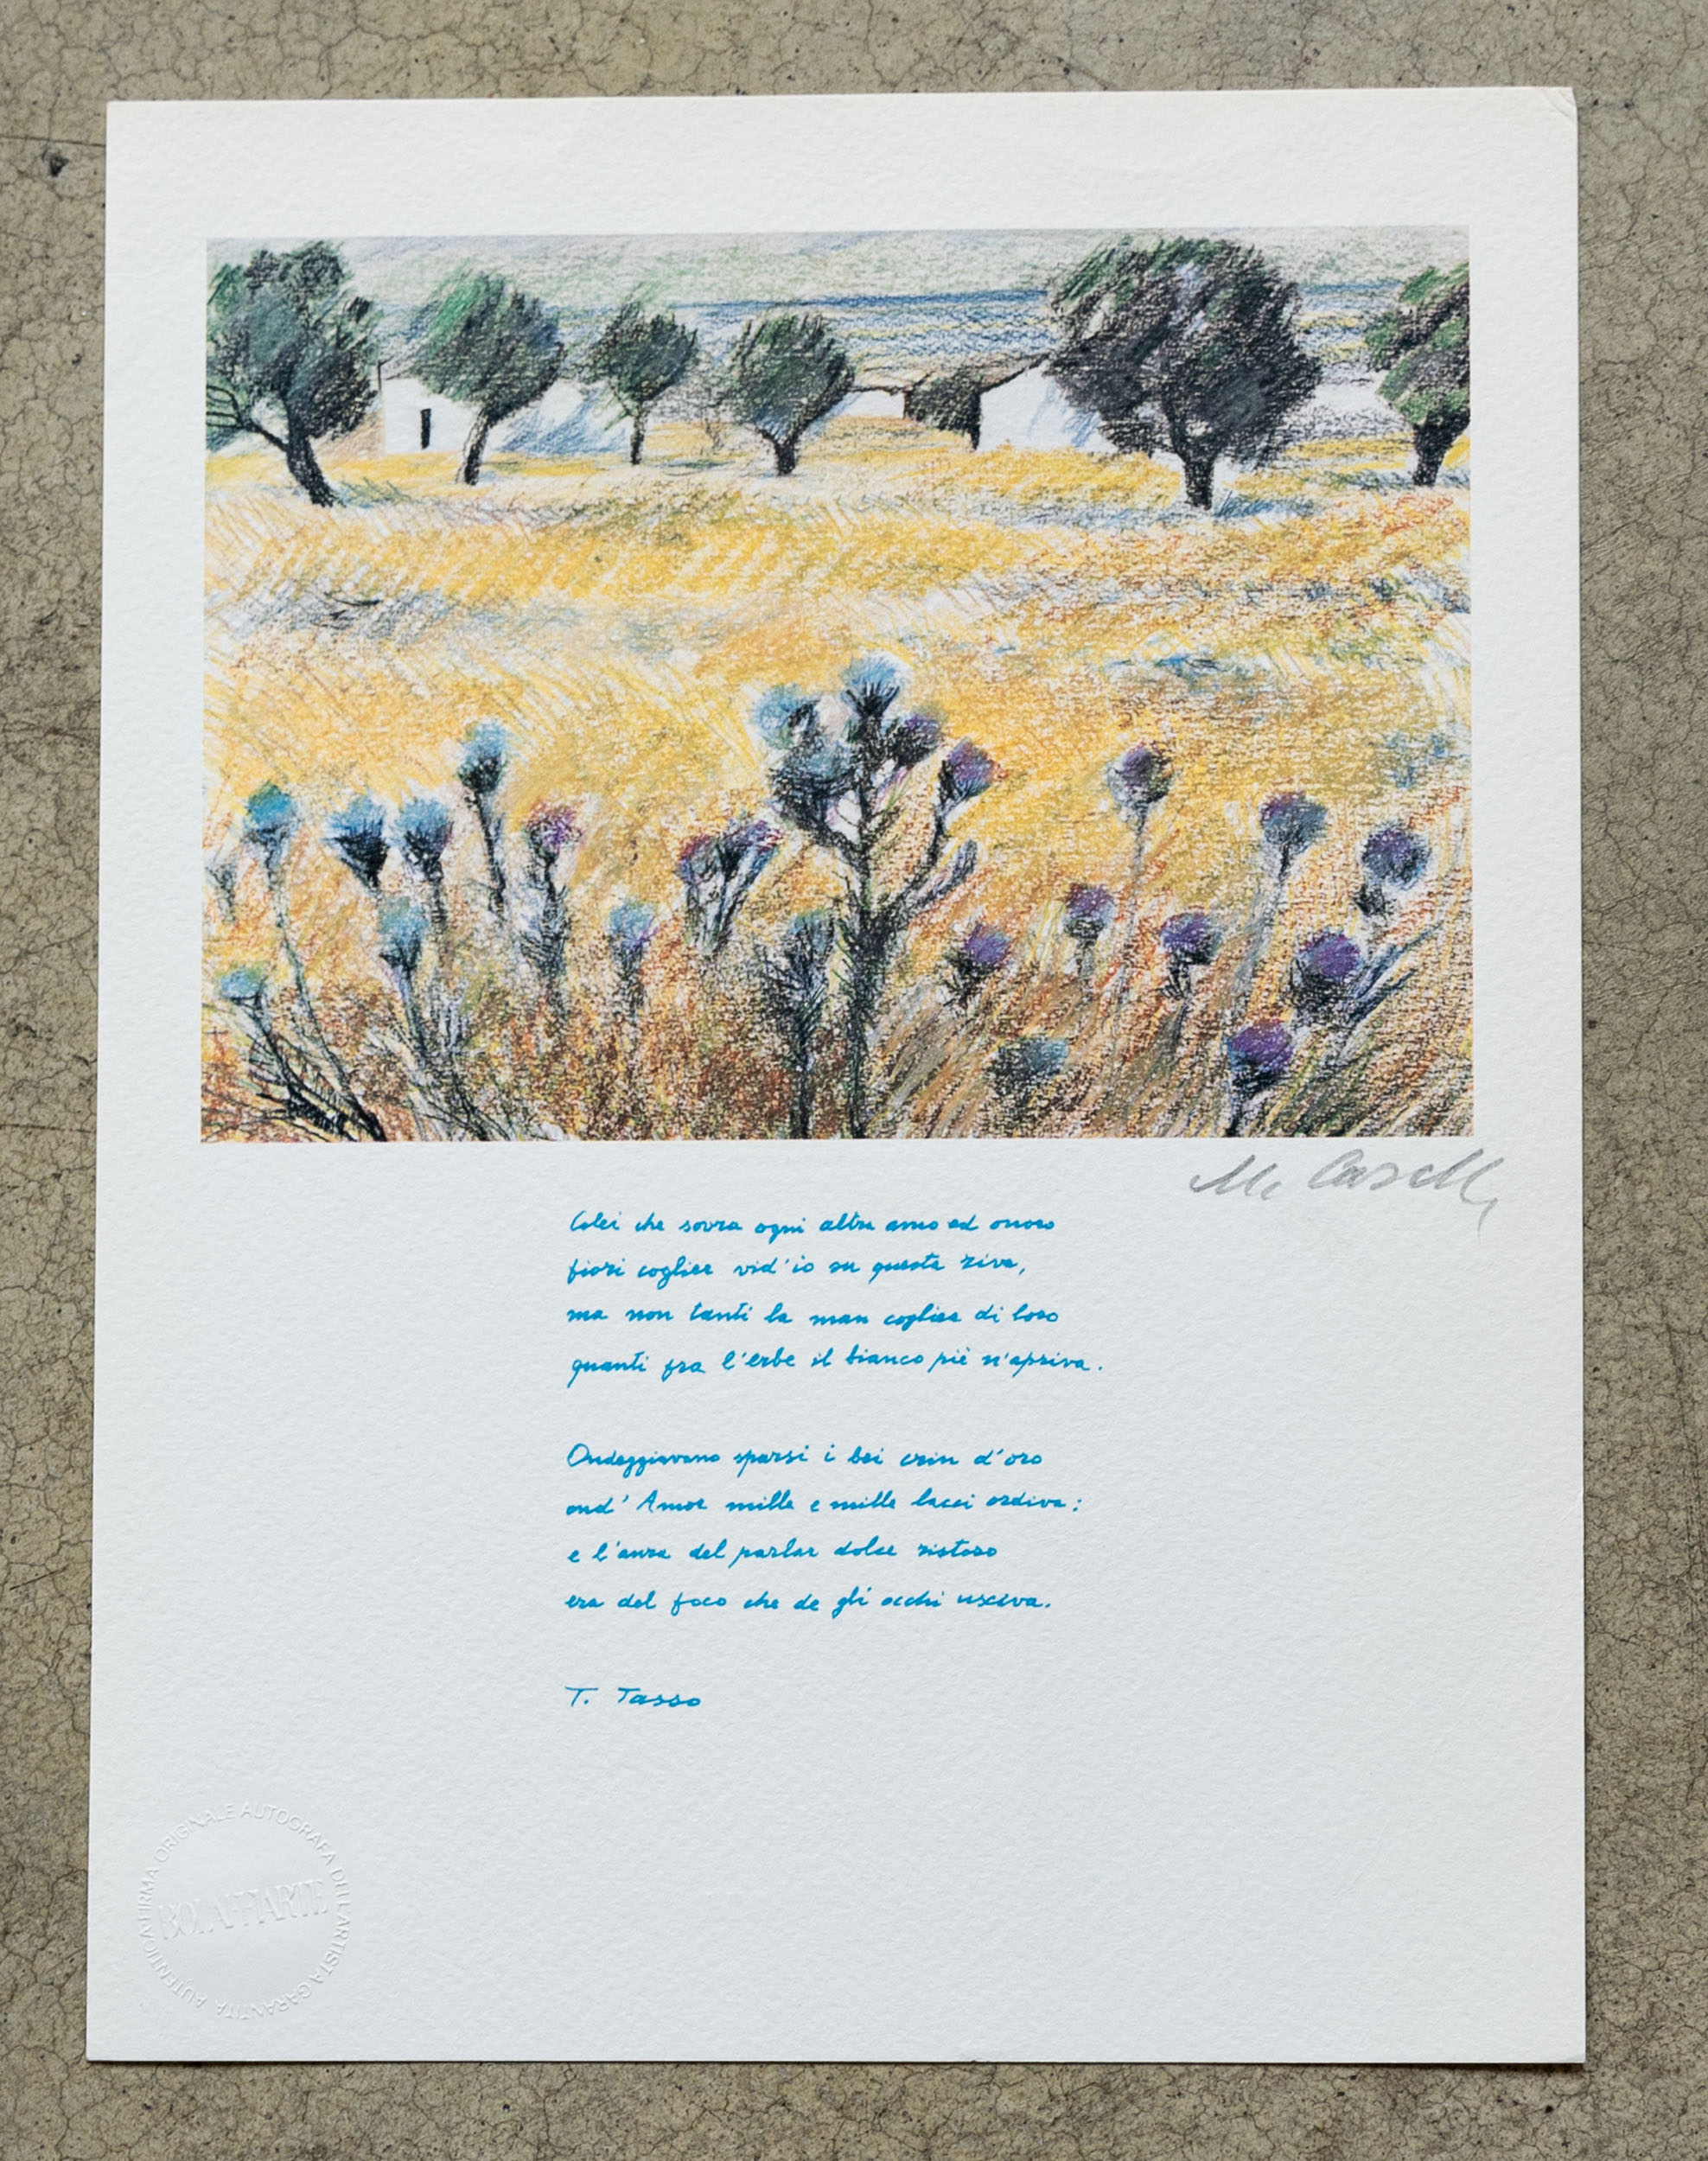 M. Caselli
Colei che sovra ogni altra amo ed onoro
fiori coglier vid'io su questa riva,
ma non tanti la man coglica di loro
quanti fra l'erbe il bianco piè n'apriva.
Ondeggiavano sparsi i bei crin d'oro
ond' Amor mille e mille lacci ordiva;
e l'aura del parlar dolce ristoro
era del foco che de gli occhi usciva.
T. Tasso
AUTENTICA FIRMA ORIGINALE AUTOGRAFA DELL'ARTISTA GARANTITA
BOLAFFIARTE